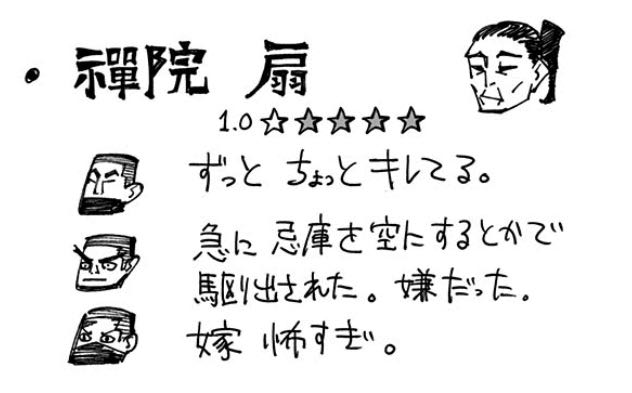 ・禪院 扇
1.0☆★★★★
ずっと ちょっとキレてる。
急に 忌庫を空にするとかで
駆り出された。嫌だった。
嫁 怖すぎ。